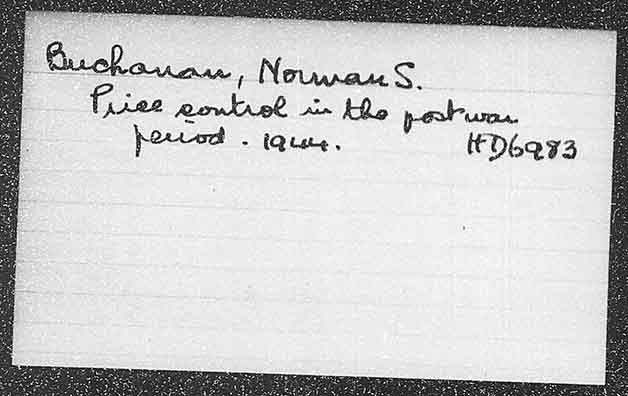 Buchanan, Norman S.
Price control in the postwar
period. 1944. HD6983